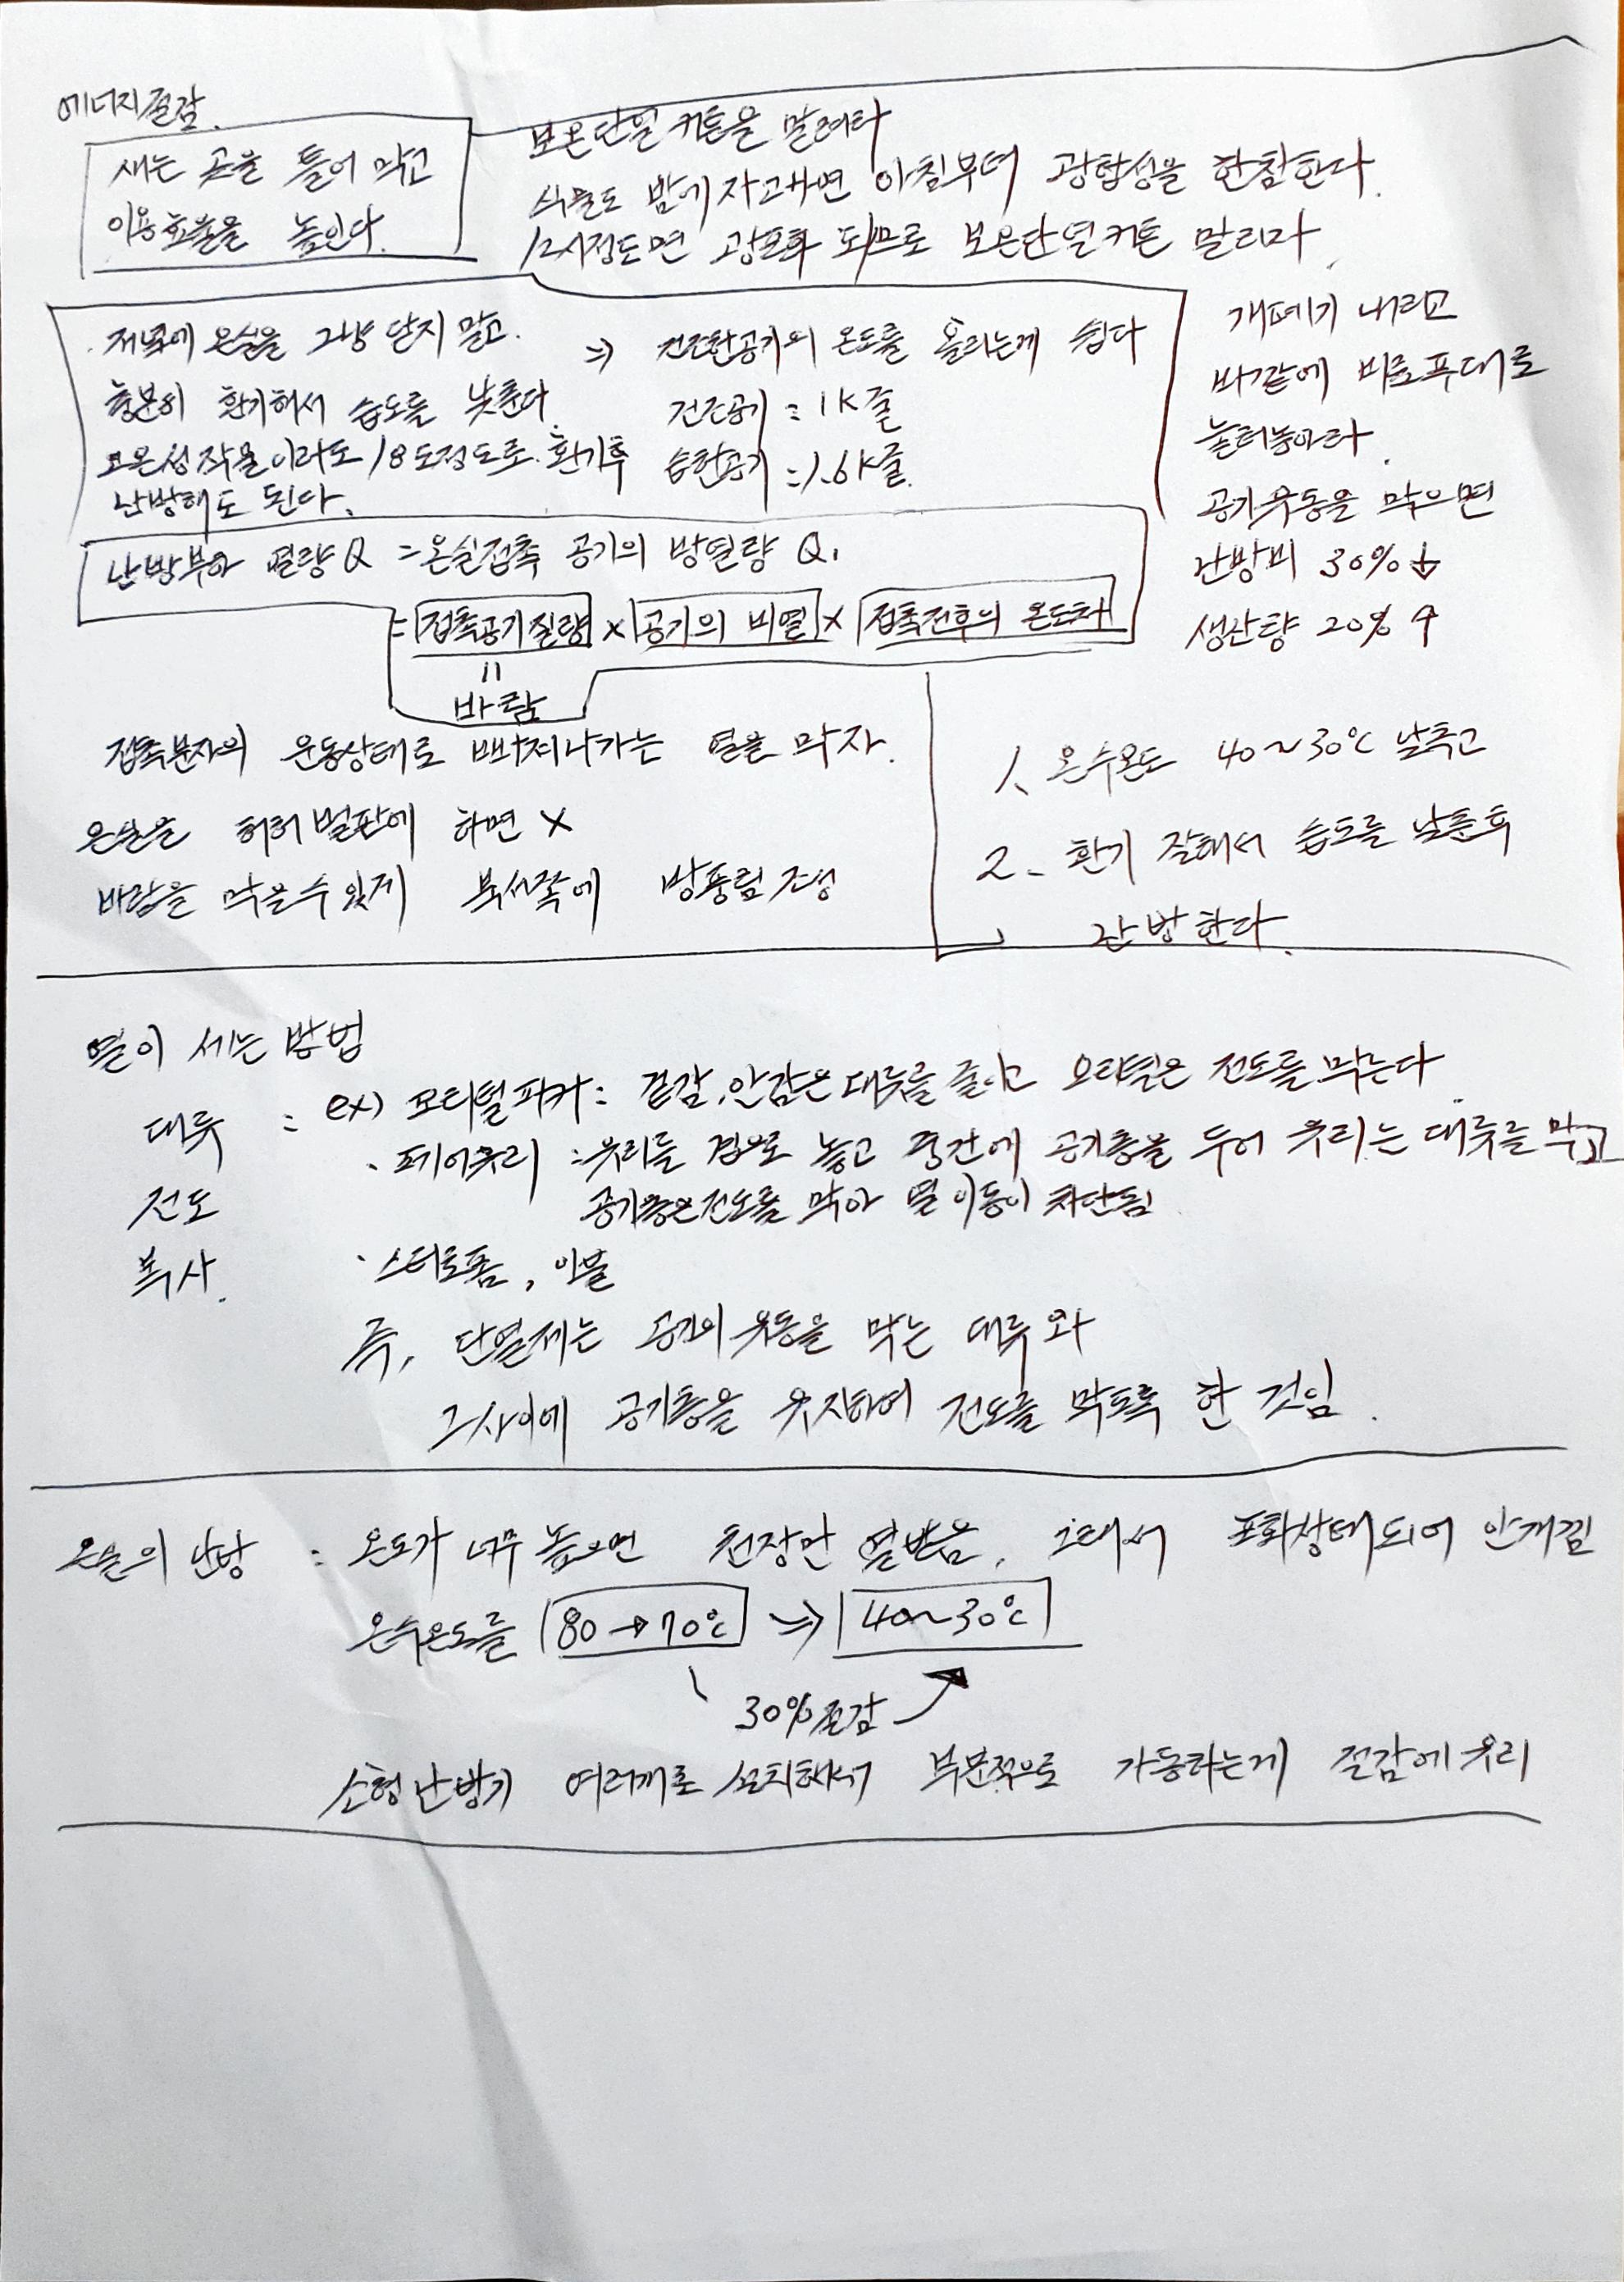 에너지절감.
새는 곳을 틀어 막고
이용효율을 높인다.
보온단열 커튼을 말려라
식물도 밤에 자고나면 아침부터 광합성을 한참한다.
12시정도면 광포화 되므로 보온단열커튼 말리자.
저녁에 온실을 그냥 닫지 말고.
충분히 환기해서 습도를 낮춘다.
고온성 작물이라도 18도정도로 환기후
난방해도 된다.
⇒ 건조한공기의 온도를 올리는게 쉽다
건조공기 = 1K줄
습한공기 = 1.6K줄.
개폐기 내리고
바깥에 비료푸대로
눌러놓아라.
공기유동을 막으면
난방비 30% ↓
생산량 20% ↑
난방부하 열량 Q = 온실접촉 공기의 방열량 Q1
= 접촉공기질량 × 공기의 비열 × 접촉전후의 온도차
=
바람
접촉분자의 운동상태로 빠져나가는 열을 막자.
온실을 허허벌판에 하면 X
바람을 막을수있게 북서쪽에 방풍림 조성
1. 온수온도 40~30℃ 낮추고
2. 환기 잘해서 습도를 낮춘후
난방한다.
열이 세는 방법
대류 : ex) 오리털파카 : 겉감, 안감은 대류를 줄이고 오리털은 전도를 막는다.
· 페어유리 : 유리를 겹으로 놓고 중간에 공기층을 두어 유리는 대류를 막고
전도
공기층은 전도를 막아 열이동이 차단됨
복사.
· 스티로폼, 이불
즉, 단열제는 공기의 유동을 막는 대류와
그사이에 공기층을 유지하여 전도를 막도록 한 것임.
온실의 난방 : 온도가 너무 높으면 천장만 열받음, 그래서 포화상태되어 안개낌
온수온도를 80→70℃ ⇒ 40~30℃
30%절감
소형난방기 여러개로 설치해서 부분적으로 가동하는게 절감에 유리